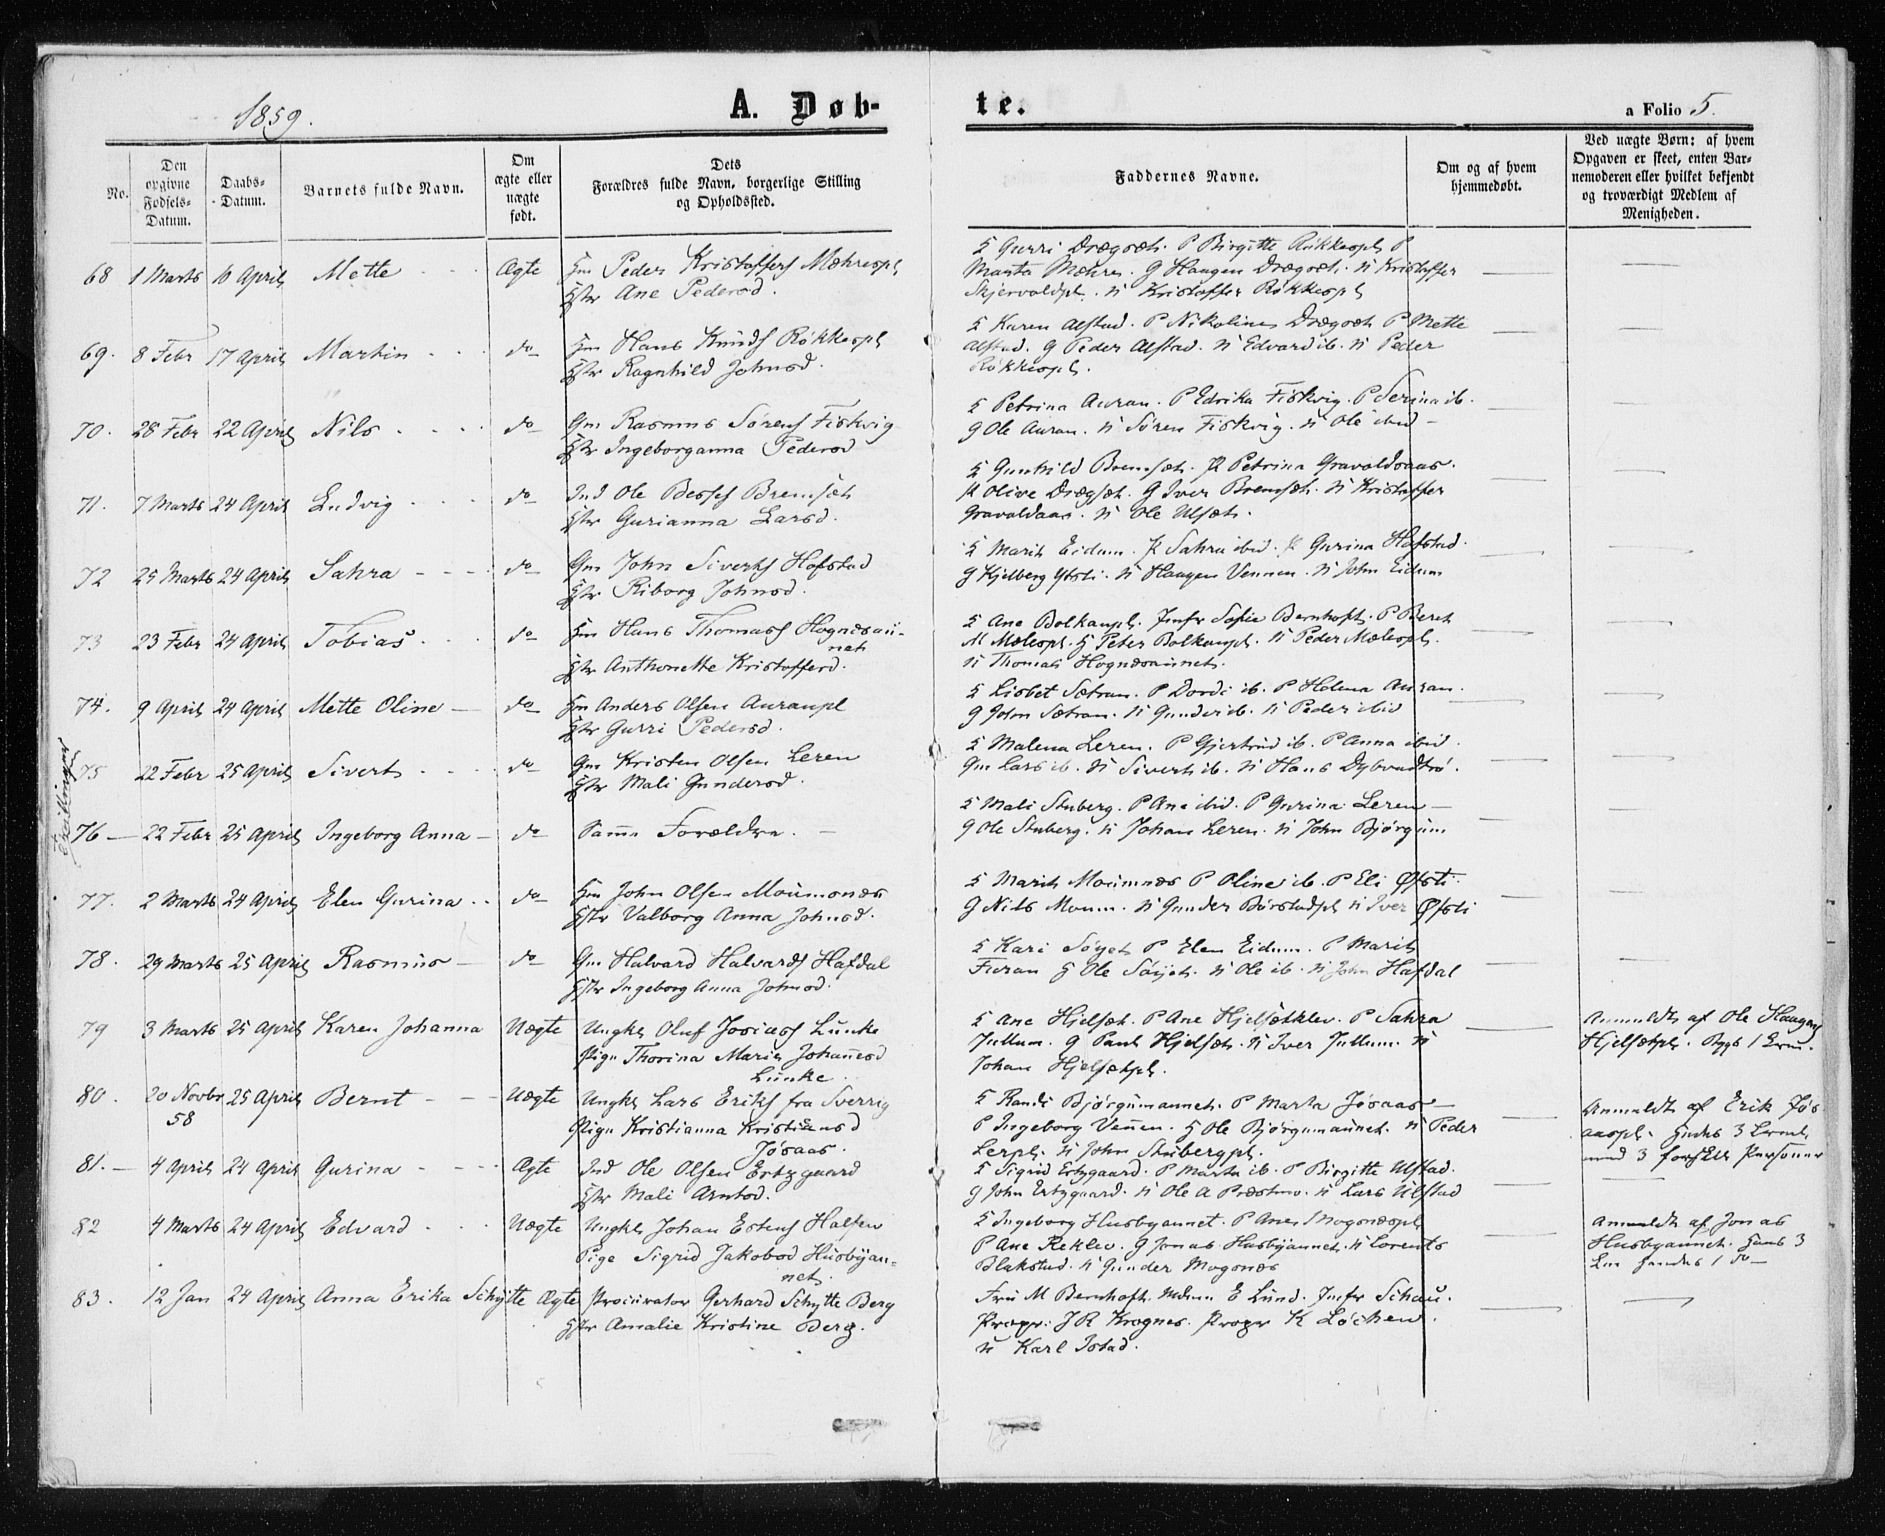 1859.
A. Døb-
te.
a Folio 5.
No.
Den
opgivne
Fødsels-
Datum.
Daabs-
Datum.
Barnets fulde Navn.
Om
ægte eller
uægte
født.
Dets
Forældres fulde Navn, borgerlige Stilling
og Opholdssted.
Faddernes Navne.
Om og af hvem
hjemmedøbt.
Ved uægte Børn: af hvem
Opgaven er skeet, enten Bar-
nemoderen eller hvilket bekjendt
og troværdigt Medlem af
Menigheden.
68 1 Marts 10 April Mette Ægte Hm Peder Kristoffers Mæhrespl
Hstr Ane Pedersd.
K Gurri Drægset. P Birgitte Røkkespl P
Marta Mæhre. G Haagen Drægset. N Kristoffer
Skjervoldpl. N Kristoffer Røkkespl
69. 8 Febr 17 April Martin do Hm Hans Knuds Røkkespl
Hstr Ragnhild Johnsd.
K Karen Alstad. P Nikoline Drægset P Mette
Alstad. G Peder Alstad. N Edvard ib. N Peder
Røkkespl.
70. 28 Febr 22 April Nils do Gm Rasmus Sørens Fiskvig
Hstr Ingeborganna Pedersd
K Petrina Auran. P Edrika Fiskvig. P Serina ib.
G Ole Auran. N Søren Fiskvig. N Ole ibid
71. 7 Marts 24 April Ludvig do Ind Ole Besses Bremset
Hstr Gurianna Larsd.
K Gunhild Bremset. P Petrina Gravoldsaas.
P Olive Drægset. G Iver Bremset. N Kristoffer
Gravoldaas. N Ole Ulset.
72 25 Marts 24 April Sahra do Gm John Siverts Hofstad
Hstr Riborg Johnsd.
K Marit Eidum. P Sahra ibid. P Gurina Hofstad.
G Kjelberg Ystti. N Haagen Vennen. N John Eidum
73 23 Febr 24 April Tobias do Hm Hans Thomass Hognesau-
net
Hstr Anthonette Kristofferd.
K Ane Bolkanpl. Jmfr Sofie Bernhoft. P Beret
M Mælespl. G Peter Bolkanpl. N Peder Mælespl.
N Thomas Hognesaunet.
74. 9 April 24 April Mette Oline do Hm Anders Olsen Auranpl
Hstr Gurri Pedersd.
K Lisbet Sætran. P Dordi ib. P Helena Auran.
G John Sætran. N Gunder ib. N Peder ibid
Tvillinger
75 22 Febr 25 April Sivert do Gm Kristen Olsen Leren
Hstr Mali Gundersd.
K Malena Leren. P Gjertrud ib. P Anna ibid
Gm Lars ib. N Sivert ib. N Hans Dybvadtrø.
76 22 Febr 25 April Ingeborg Anna do Samme Forældre.
K Mali Stuberg. P Ane ibid. P Gurina Leren
G Ole Stuberg. N Johan Leren. N John Bjørgum
77. 2 Marts 24 April Elen Gurina do Hm John Olsen Moumsnes
Hstr Valborg Anna Johnsd.
K Marit Moumnes P Oline ib. P Eli Øfsti.
G Nils Moum. N Gunder Børstadpl N Iver Øfsti
78. 29 Marts 25 April Rasmus do Gm Halvard Halvards Hafdal
Hstr Ingeborg Anna Johnsd.
K Kari Søyet P Elen Eidum. P Marit
Fieran G Ole Søyet. N Ole ib. N John Hafdal
79 3 Marts 25 April Karen Johanna Uægte Ungkl Oluf Josiass Lunke
Pige Thorina Marie Johannesd
Lunke.
K Ane Hjelset. P Ane Hjelsetklev. P Sahra
Jullum. G Paul Hjelset. N Iver Jullum. N
Johan Hjelsetpl.
Anmeldt af Ole Haagens
Hjelsetpl. Begs 1 Lerm.
80. 20 Novbr 25 April Bernt Uægte Ungkl Lars Eriks fra Sverrig
58
Pige Kristianna Kristiansd
Jøsaas.
K Randi Bjørgumaunet. P Marta Jøsaas
P Ingeborg Vennen. G Ole Bjørgumaunet. N Peder
Lerpl. N John Stubergpl.
Anmeldt af Erik Jøs
aaspl. Hendes 3 Lerm.
med 3 forskll Personer
81. 4 April 24 April Gurina Ægte Ind Ole Olsen Ertzgaard
Hstr Mali Arntsd.
K Sigrid Ertzgaard. P Marta ib. P Birgitte Ulstad.
G John Ertzgaard. N Ole A Præstmo. N Lars Ulstad
82 4 Marts 24 April Edvard Uægte Ungkl Johan Estens Halsen
Pige Sigrid Jakobsd Husbyau-
net.
K Ingeborg Husbyaunet. P Ane Mogsnespl
P Ane Reklev. G Jonas Husbyaunet. N Lorents
Blakstad. N Gunder Mogsnes
Anmeldt af Jonas
Husbyaunet. Hans 3
Lm Hendes 1 do
83. 12 Jan 24 April Anna Erika Schytte Ægte Procurator Gerhard Schytte Berg
Hstr Amalie Kristine Berg.
Fru M Bernhoft. Mdme E Lund. Jmfr Schau.
Propr: J R Krognes. Propr K Løchen.
N Karl Istad.